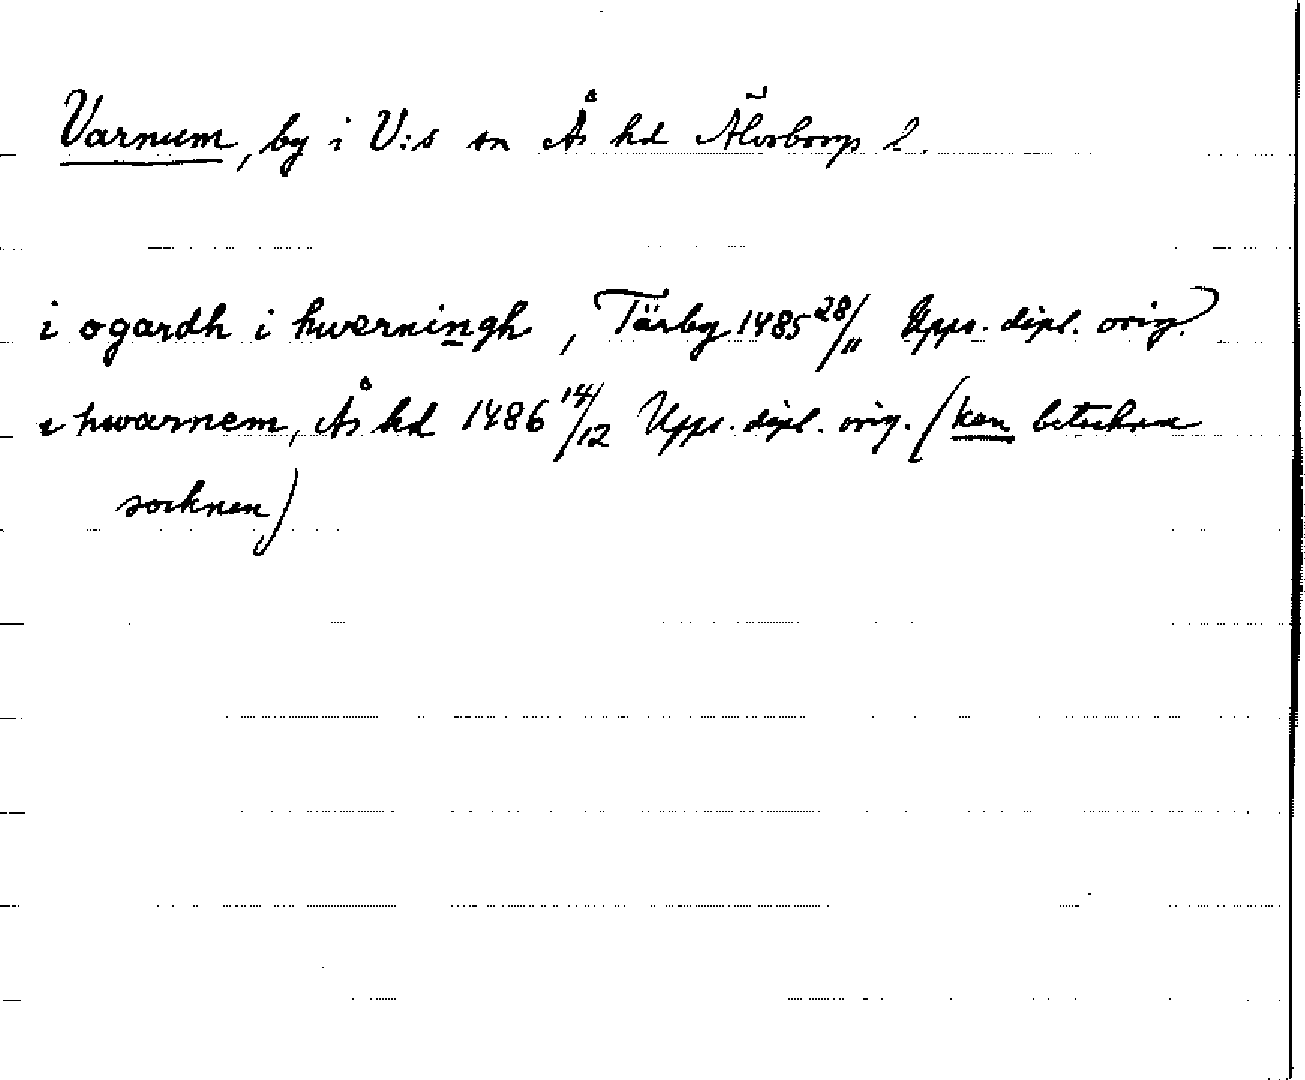 Varnum, by i V:s sn Ås hd Älvsborgs l.
i ogardh i hwerningh, Tärby 1485 28/11 Upps. dipl. orig.
i hwarnem, Ås hd 1486 14/12 Upps. dipl. orig. (kan beteckna
socknen)